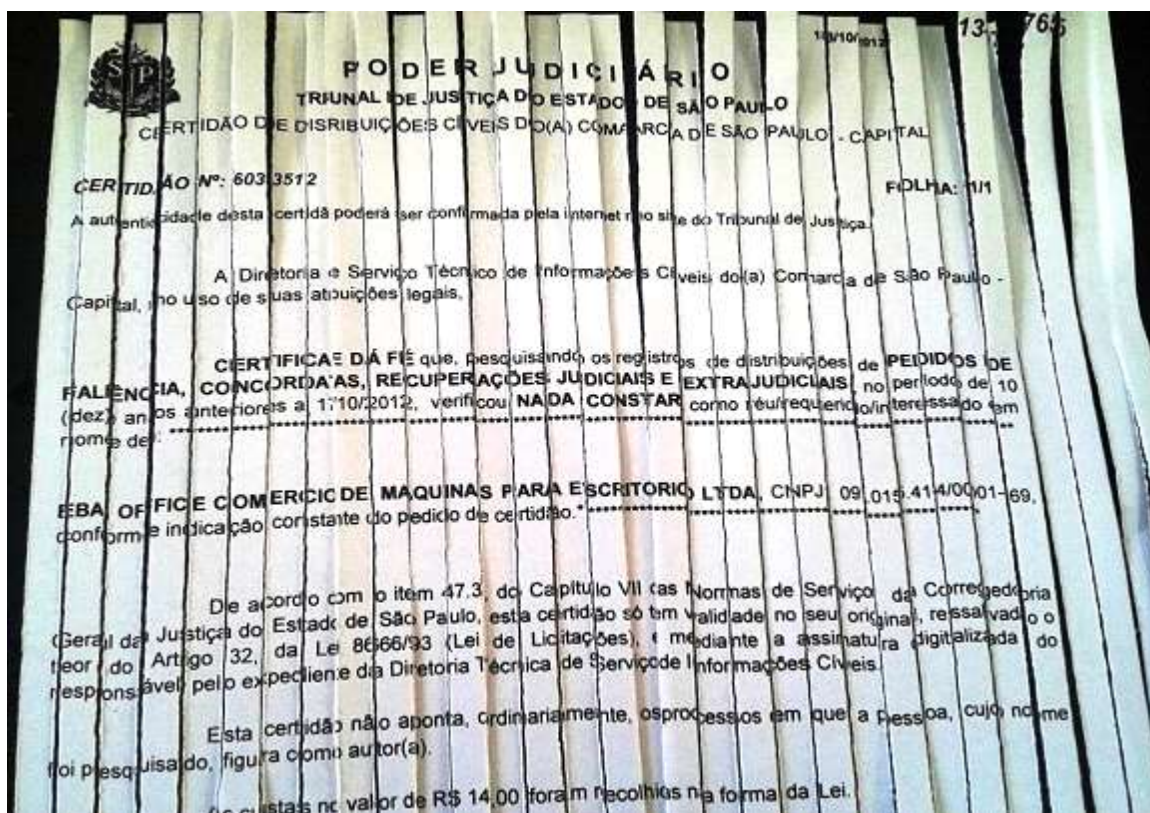 PODER JUDICIÁRIO
TRIUNAL DE JUSTIÇA DO ESTADO DE SÃO PAULO
CERTIDÃO DE DISRIBUIÇÕES CÍVEIS DO(A) COMARCA DE SÃO PAULO - CAPITAL
CERTIDÃO Nº: 6033512 FOLHA: 1/1
A autenticidade desta certidã poderá ser confirmada pela internet no site do Tribunal de Justiça.
A Diretoria e Serviço Técnico de Informações Cíveis do(a) Comarca de São Paulo -
Capital, no uso de suas atbuições legais,
CERTIFICAE DÁ FÉ que, pesquisando os registros de distribuições de PEDIDOS DE
FALÊNCIA, CONCORDATAS, RECUPERAÇÕES JUDICIAIS E EXTRAJUDICIAIS, no período de 10
(dez) anos anteriores a 1710/2012, verificou NADA CONSTAR como réu/requerido/interessado em
nome de:
EBA OFFICE COMERCIO DE MAQUINAS PARA ESCRITORIO LTDA, CNPJ 09.015.414/0001-69,
conforme indicação constante do pedido de certidão.*
De acordo com o item 47.3, do Capítulo VII das Normas de Serviço da Corregedoria
Geral da Justiça do Estado de São Paulo, esta certidão só tem validade no seu original, ressalvado o
teor do Artigo 32, da Lei 8666/93 (Lei de Licitações), e mediante a assinatura digitalizada do
responsável pelo expediente da Diretoria Técnica de Serviçode Informações Cíveis.
Esta certidão não aponta, ordinariamente, osprocessos em que a pessoa, cujo nome
foi pesquisado, figura como autor(a).
custas no valor de R$ 14,00 foram recolhios na forma da Lei.